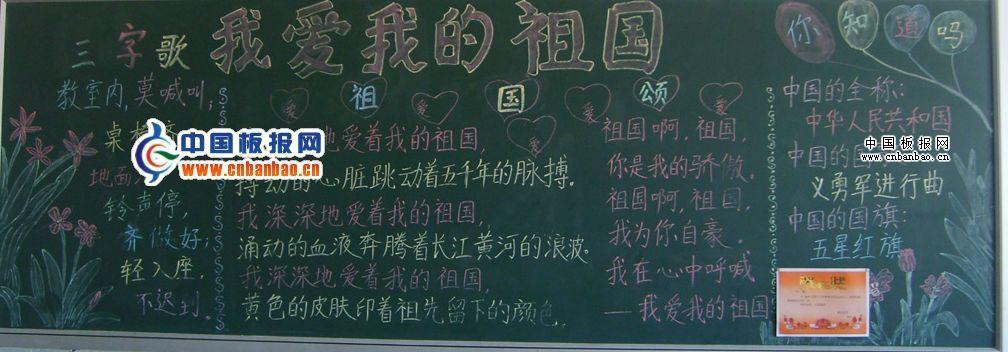 我爱我的祖国
三字歌
教室内,莫喊叫;
桌
地面
铃声停,
齐做好;
轻入座,
不迟到.
中国板报网
www.cnbanbao.cn
爱 祖 爱 国 爱 颂 爱
爱
地爱着我的祖国,
动的心脏跳动着五千年的脉搏.
我深深地爱着我的祖国,
涌动的血液奔腾着长江黄河的浪波.
我深深地爱着我的祖国,
黄色的皮肤印着祖先留下的颜色.
祖国啊,祖国
你是我的骄傲.
祖国啊,祖国,
我为你自豪.
我在心中呼喊
——我爱我的祖国
你知道吗
中国的全称:
中华人民共和国
中国的国
义勇军进行曲.
中国的国旗:
五星红旗
中国板报网
www.cnbanbao.cn